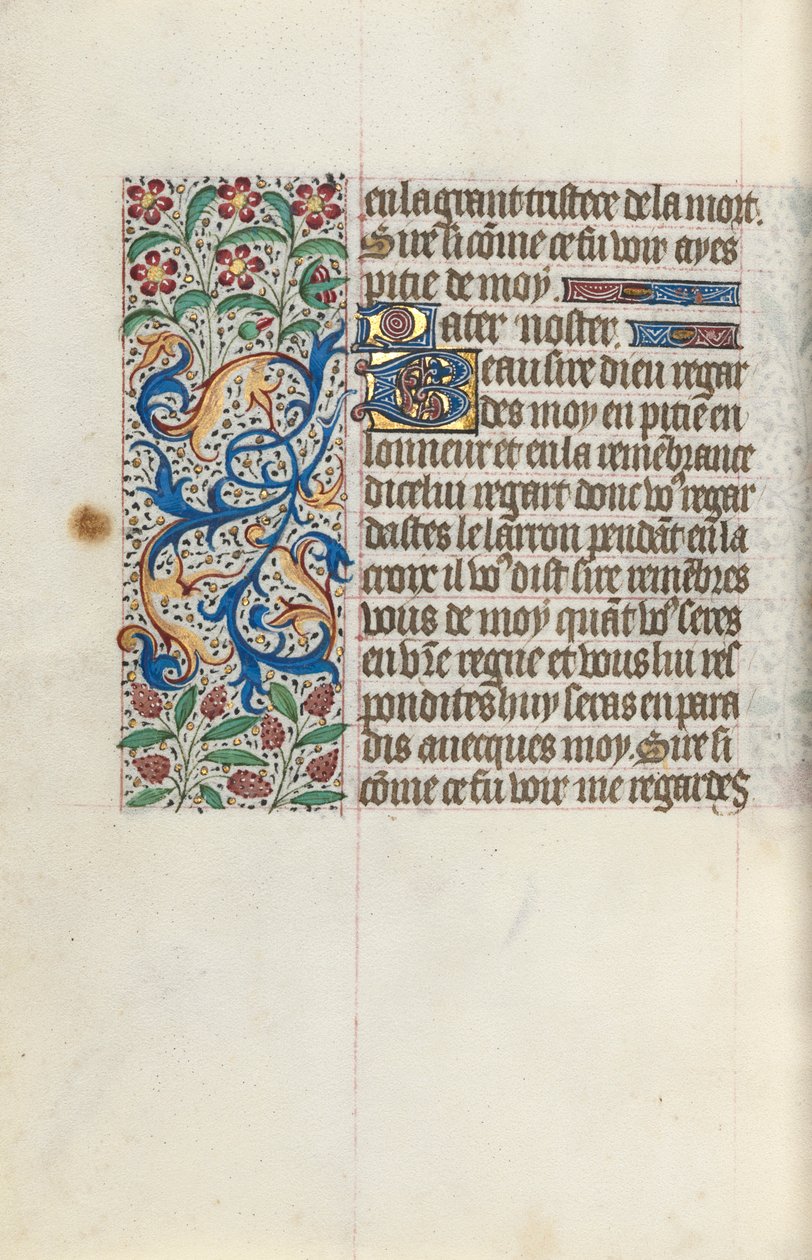 en la grant tristece de la mort.
Sire si cõme ce fu voir ayes
pitie de moy.
Pater noster.
Beau sire dieu regar
des moy en pitie en
lonneur et en la remẽbrance
dicelui regart donc voꝰ regar
dastes le larron pendãt en la
croix il voꝰ dist sire remẽbres
vous de moy quãt voꝰ seres
en vr̃e regne et vous lui res
pondites huy seras en para
dis auecques moy. Sire si
cõme ce fu voir me regardes